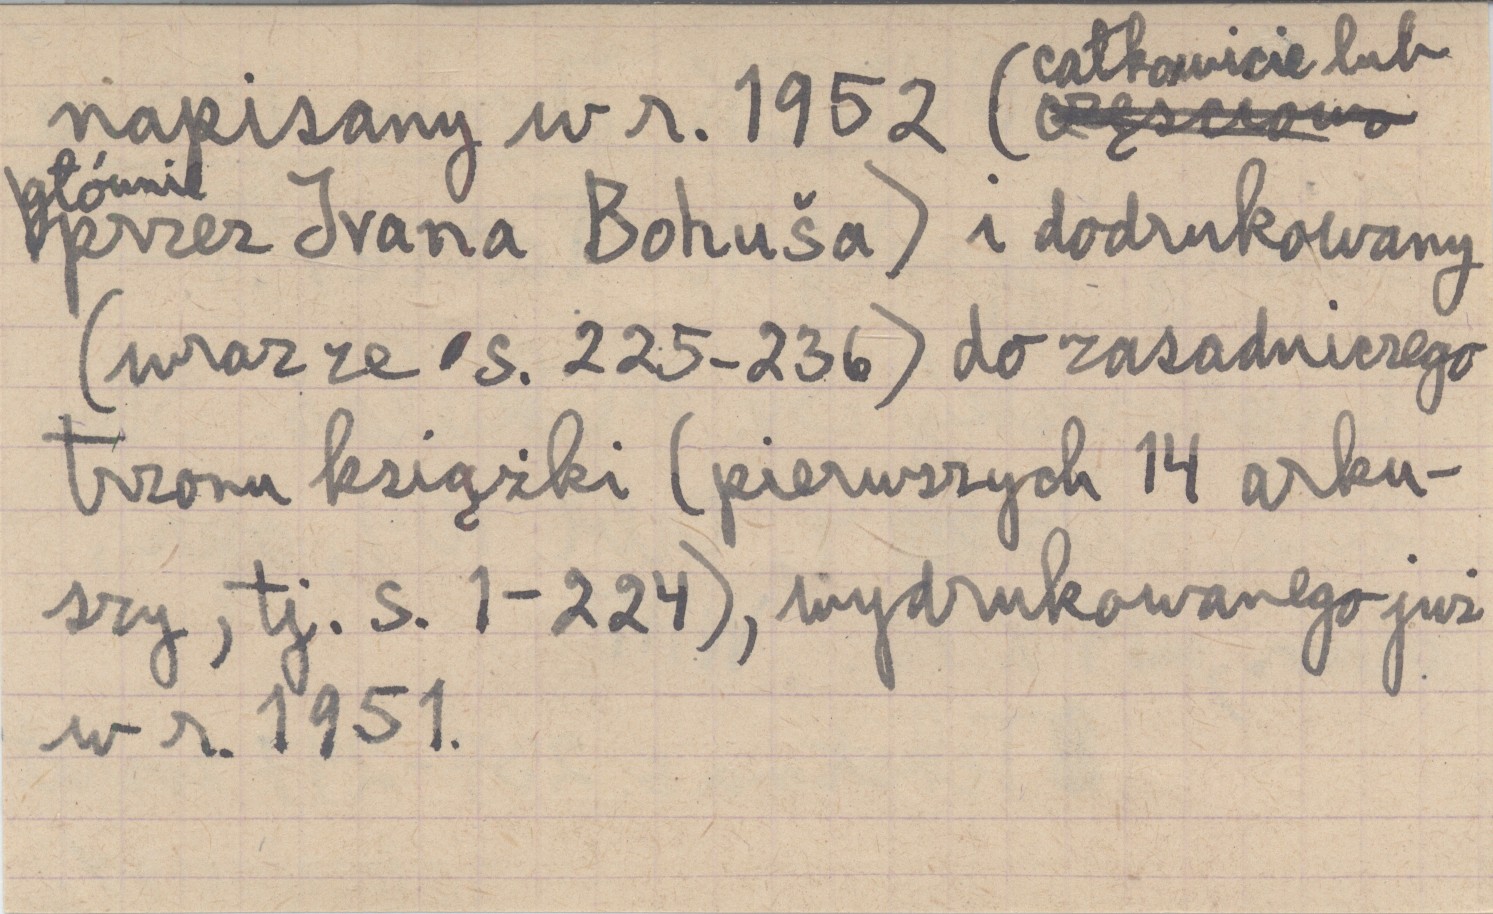 całkowicie lub
napisany w r. 1952 (częściowo
głównie
przez Ivana Bohuša) i dodrukowany
(wraz ze s. 225-236) do zasadniczego
trzonu książki (pierwszych 14 arku-
szy, tj. s. 1-224), wydrukowanego już
w r. 1951.